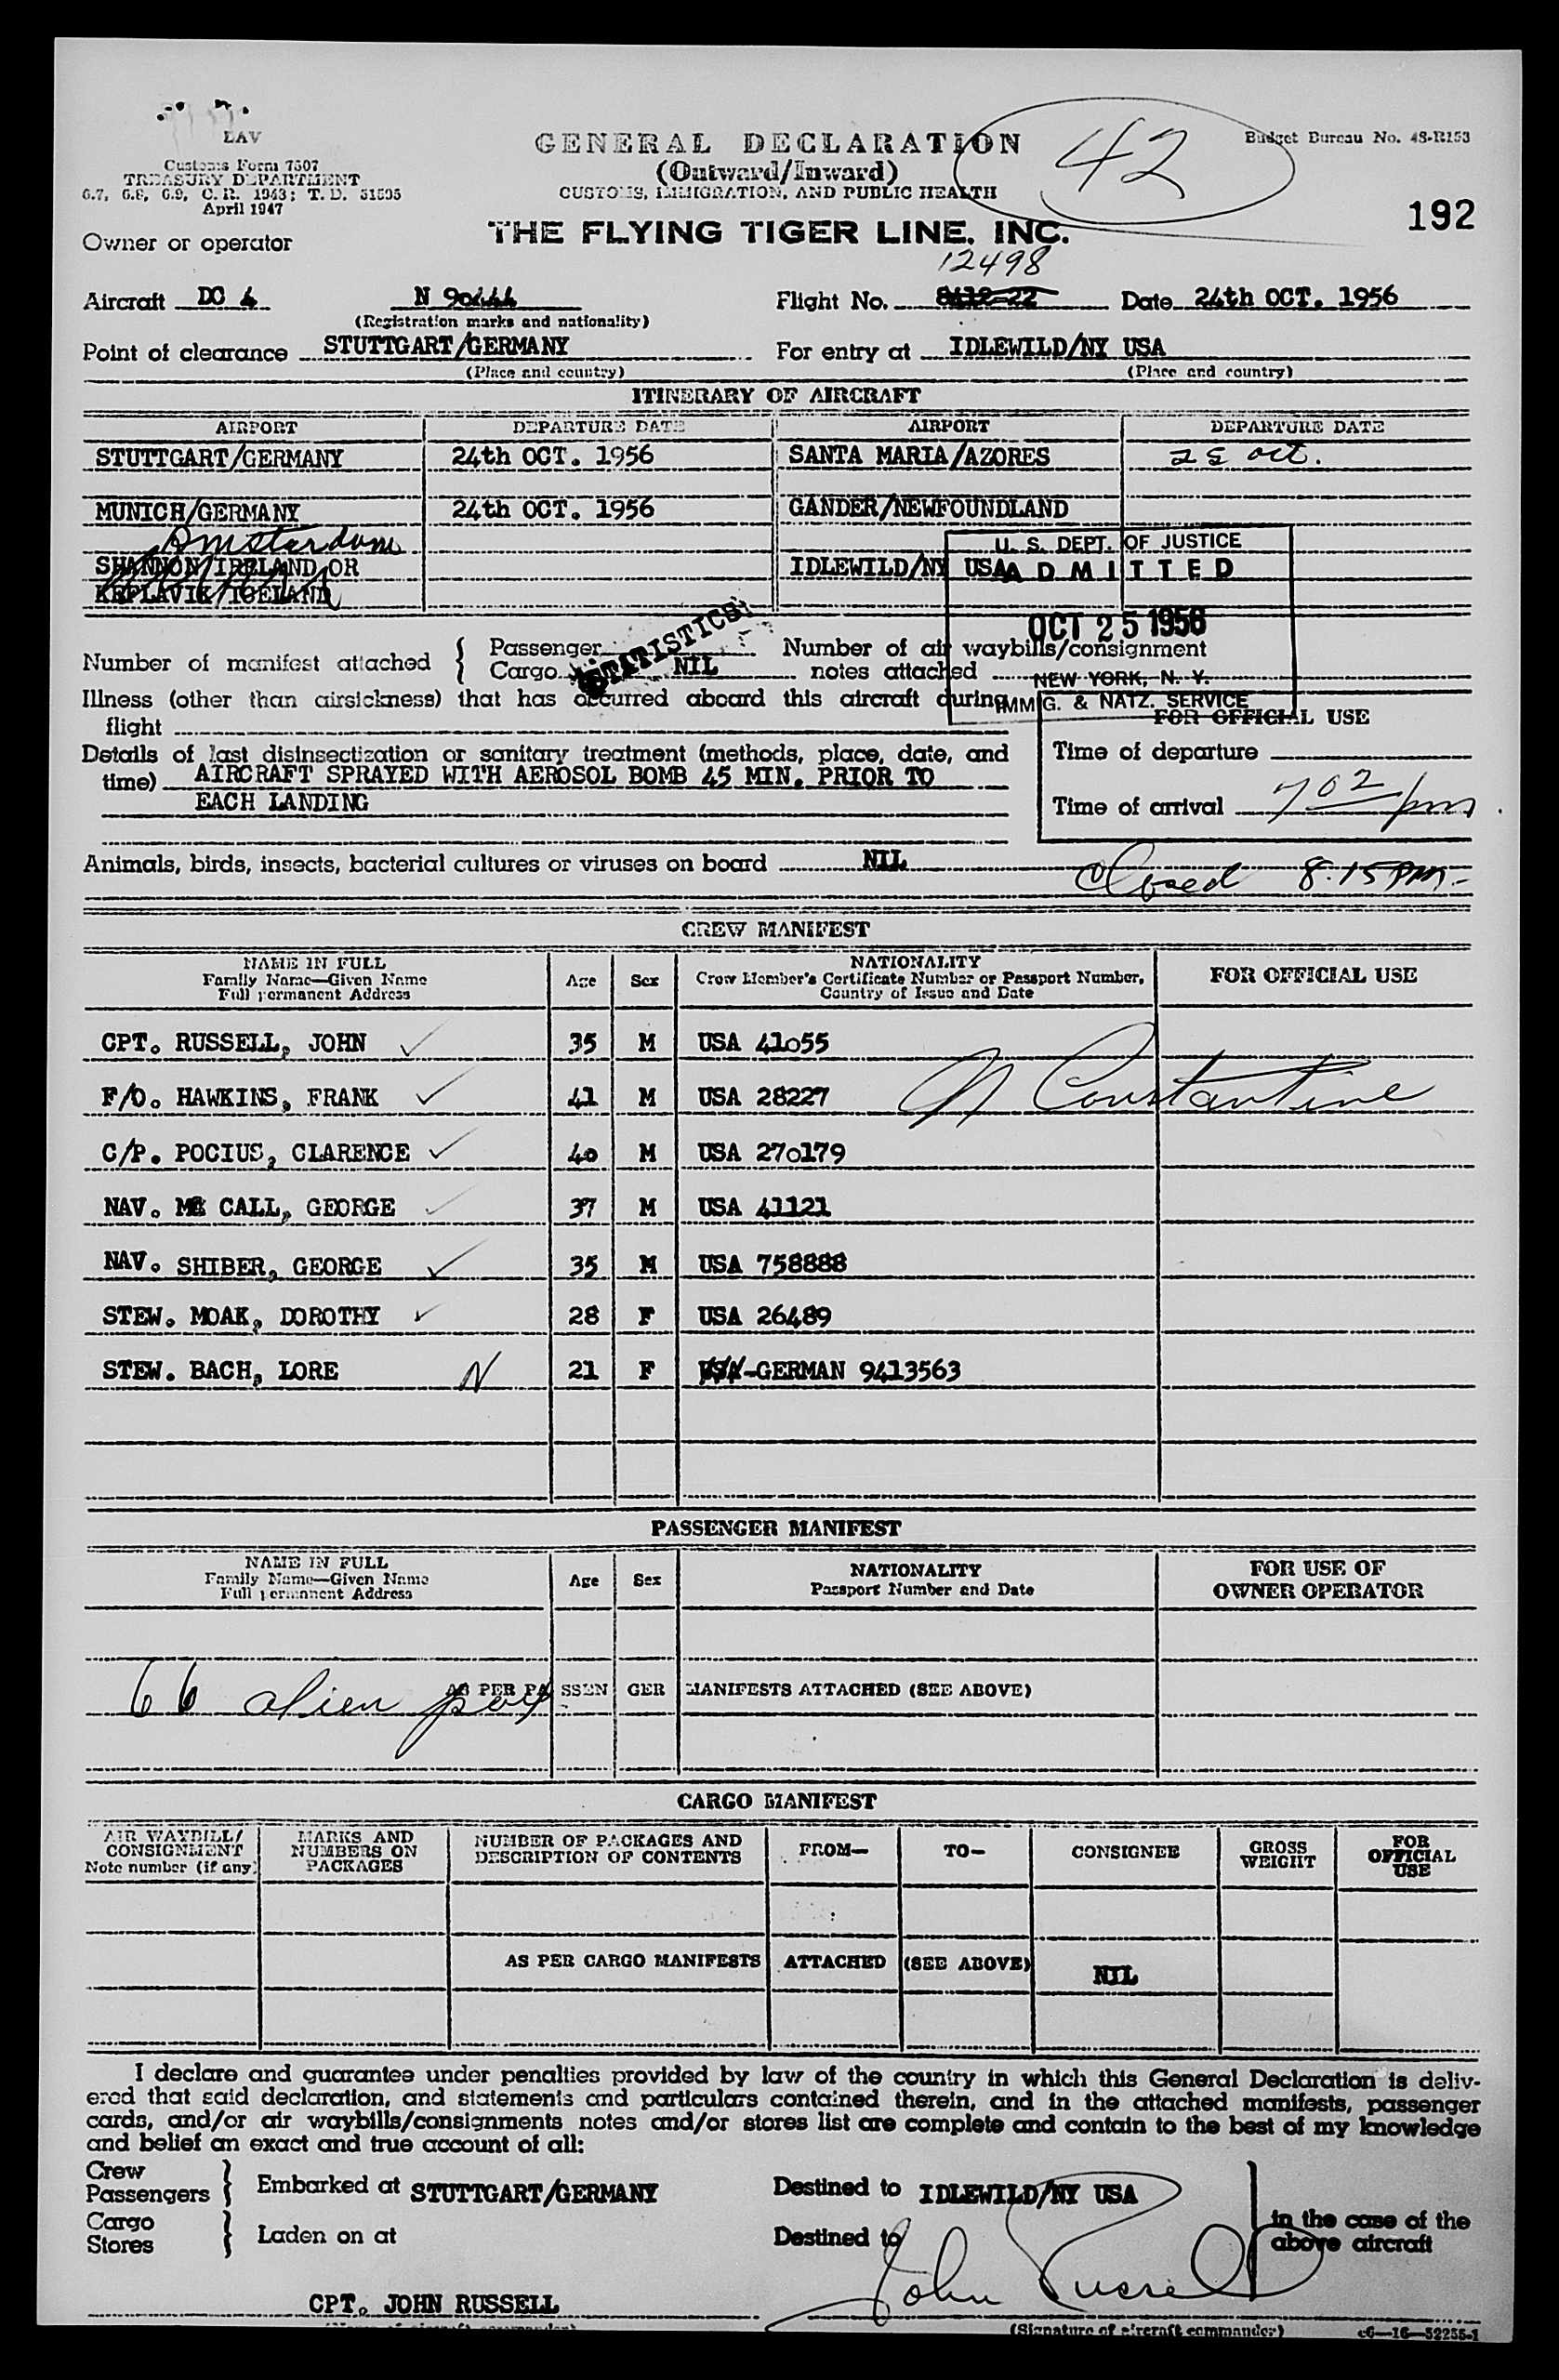 EAV
Customs Form 7507
TREASURY DEPARTMENT
6.7, 6.8, 6.9, C. R. 1943; T. D. 51595
April 1947
GENERAL DECLARATION
(Outward/Inward)
CUSTOMS, IMMIGRATION, AND PUBLIC HEALTH
42
Budget Bureau No. 48-R153
192
Owner or operator
THE FLYING TIGER LINE, INC.
12498
Aircraft DC 4 N 90444 Flight No. 8412-22 Date 24th OCT. 1956
(Registration marks and nationality)
Point of clearance STUTTGART/GERMANY For entry at IDLEWILD/NY USA
(Place and country) (Place and country)
ITINERARY OF AIRCRAFT
AIRPORT DEPARTURE DATE AIRPORT DEPARTURE DATE
STUTTGART/GERMANY 24th OCT. 1956 SANTA MARIA/AZORES 25 oct.
MUNICH/GERMANY 24th OCT. 1956 GANDER/NEWFOUNDLAND
Amsterdam
SHANNON/IRELAND OR IDLEWILD/NY USA
KEFLAVIK/ICELAND
U. S. DEPT. OF JUSTICE
ADMITTED
OCT 25 1956
NEW YORK, N. Y.
IMMIG. & NATZ. SERVICE
STATISTICS
Number of manifest attached { Passenger
Cargo NIL
Number of air waybills/consignment
notes attached
Illness (other than airsickness) that has occurred aboard this aircraft during
flight
FOR OFFICIAL USE
Details of last disinsectization or sanitary treatment (methods, place, date, and
time) AIRCRAFT SPRAYED WITH AEROSOL BOMB 45 MIN. PRIOR TO
EACH LANDING
Time of departure
Time of arrival 702 pm
Animals, birds, insects, bacterial cultures or viruses on board NIL
Closed 8:15 PM-
CREW MANIFEST
NAME IN FULL
Family Name—Given Name
Full permanent Address
Age Sex
NATIONALITY
Crew Member's Certificate Number or Passport Number,
Country of Issue and Date
FOR OFFICIAL USE
CPT. RUSSELL, JOHN 35 M USA 41055
F/O. HAWKINS, FRANK 41 M USA 28227
N Constantine
C/P. POCIUS, CLARENCE 40 M USA 270179
NAV. MC CALL, GEORGE 37 M USA 41121
NAV. SHIBER, GEORGE 35 M USA 758888
STEW. MOAK, DOROTHY 28 F USA 26489
STEW. BACH, LORE N 21 F USA-GERMAN 9413563
PASSENGER MANIFEST
NAME IN FULL
Family Name—Given Name
Full permanent Address
Age Sex
NATIONALITY
Passport Number and Date
FOR USE OF
OWNER OPERATOR
66 alien pax
AS PER PASSENGER MANIFESTS ATTACHED (SEE ABOVE)
CARGO MANIFEST
AIR WAYBILL/
CONSIGNMENT
Note number (if any)
MARKS AND
NUMBERS ON
PACKAGES
NUMBER OF PACKAGES AND
DESCRIPTION OF CONTENTS
FROM— TO— CONSIGNEE
GROSS
WEIGHT
FOR
OFFICIAL
USE
AS PER CARGO MANIFESTS ATTACHED (SEE ABOVE) NIL
I declare and guarantee under penalties provided by law of the country in which this General Declaration is deliv-
ered that said declaration, and statements and particulars contained therein, and in the attached manifests, passenger
cards, and/or air waybills/consignments notes and/or stores list are complete and contain to the best of my knowledge
and belief an exact and true account of all:
Crew
Passengers } Embarked at STUTTGART/GERMANY Destined to IDLEWILD/NY USA
Cargo
Stores } Laden on at Destined to
in the case of the
above aircraft
John Russell
CPT. JOHN RUSSELL
(Signature of aircraft commander)
c6—16—52255-1